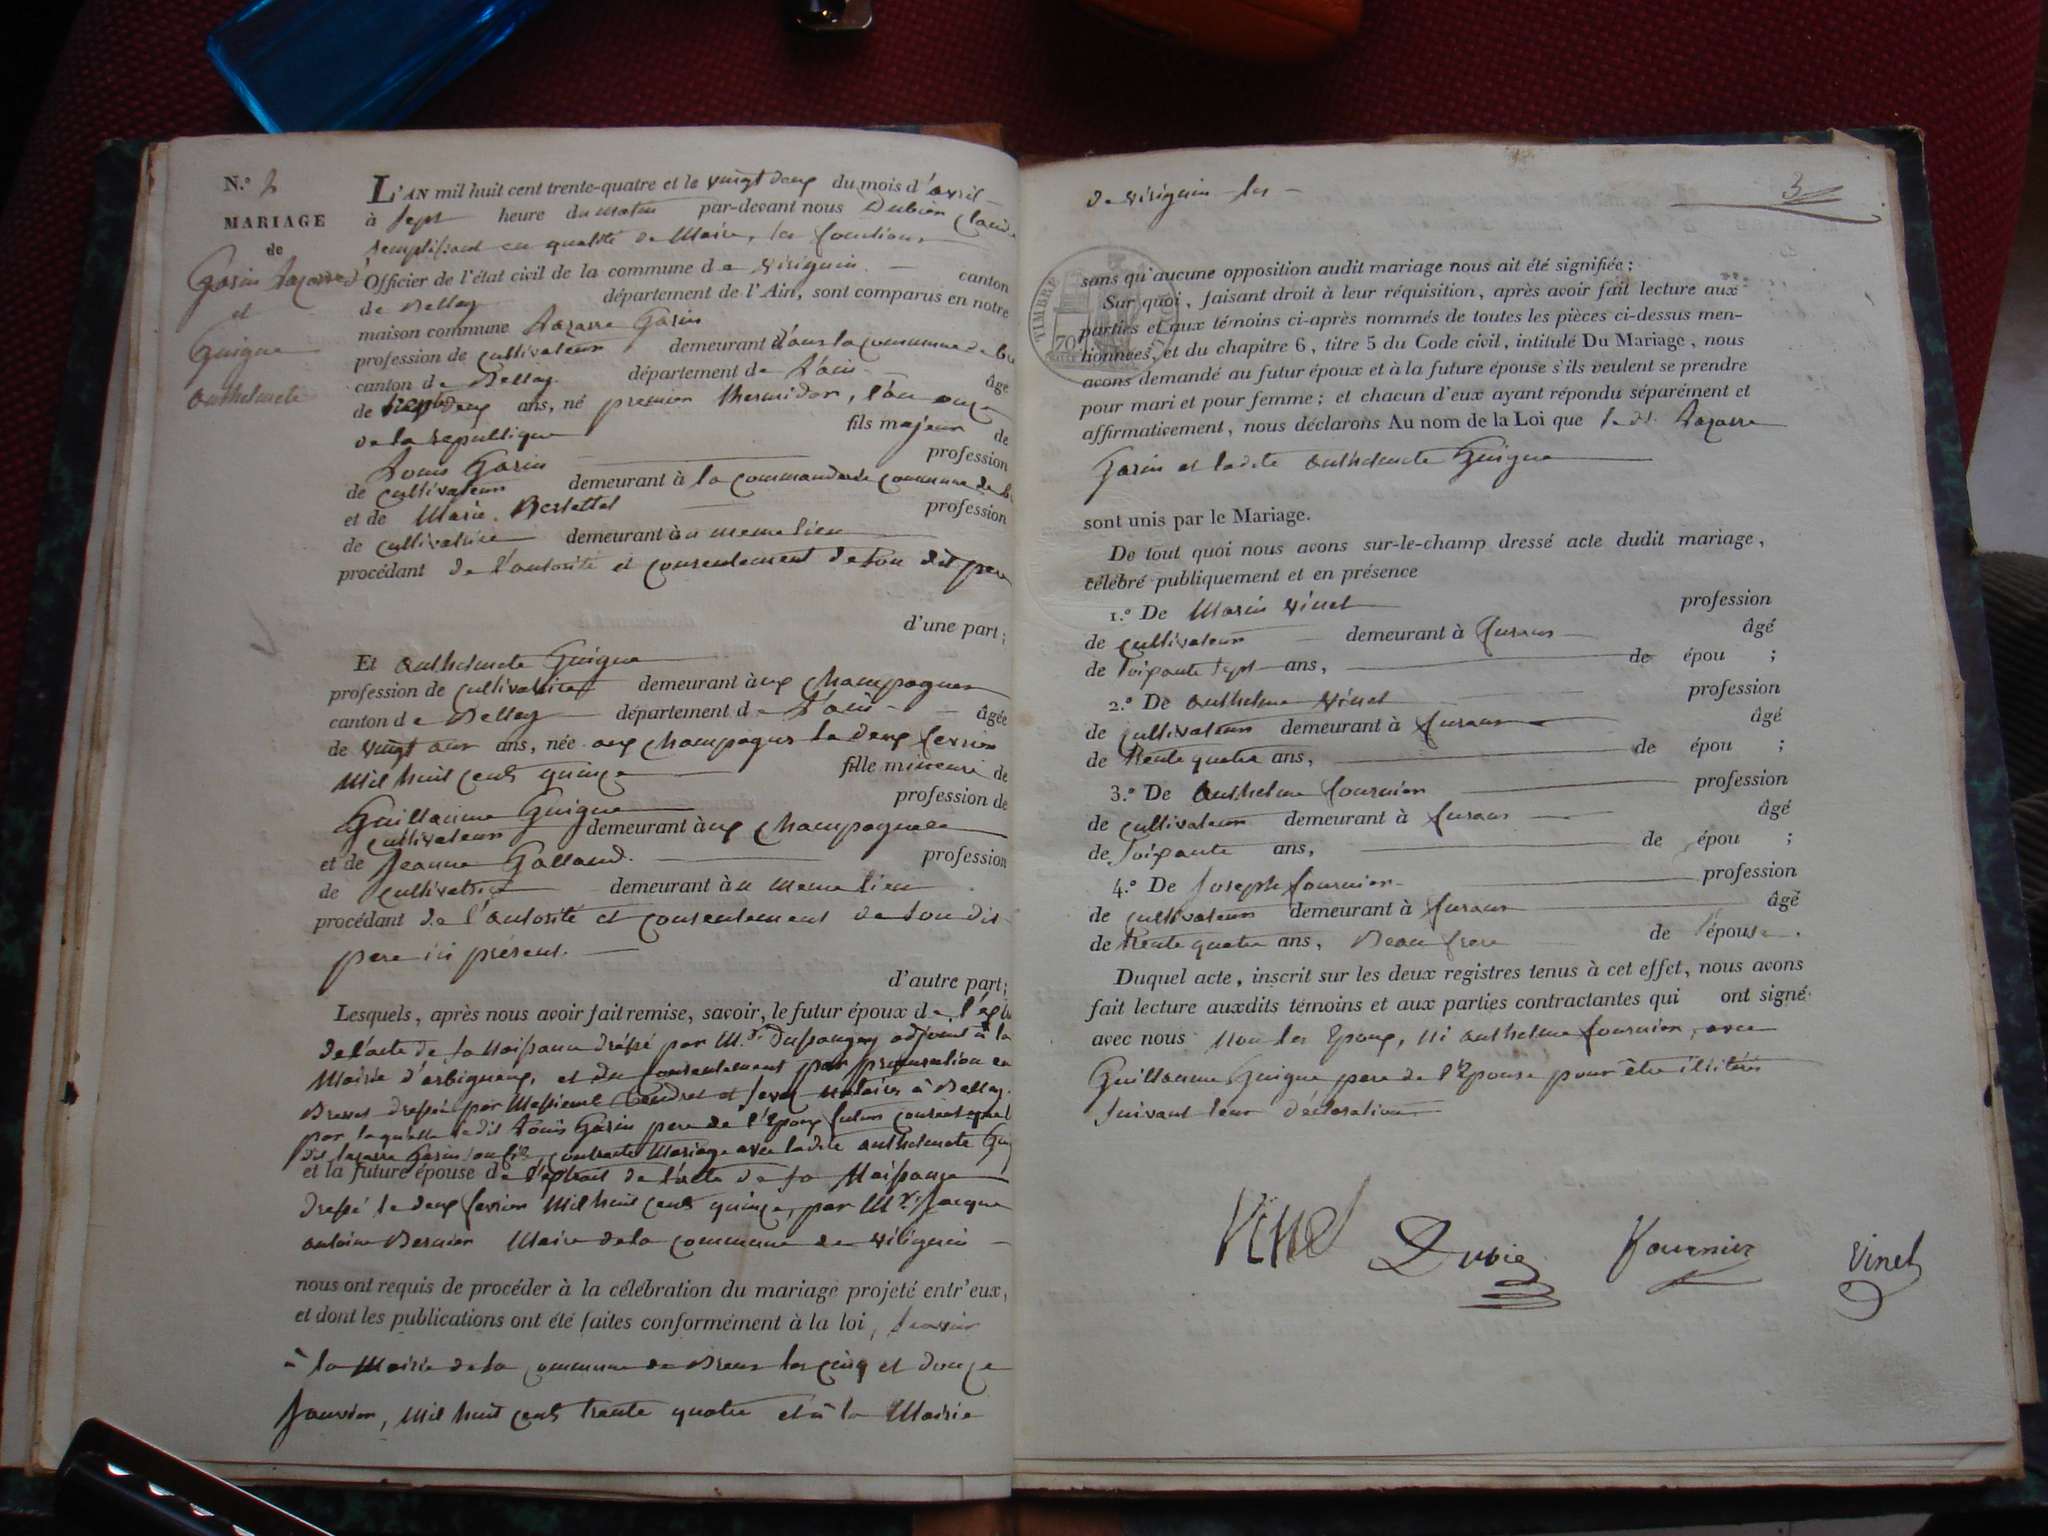 N.° 2
MARIAGE
de
Garin Lazarre
et
Guigue
anthelmete
L'AN mil huit cent trente-quatre et le vingt deux du mois d'avril
à sept heure du matin par-devant nous Dubien Claude
remplissant en qualité de Maire, les fonctions
d'Officier de l'état civil de la commune de virignin canton
de Belley département de l'Ain, sont comparus en notre
maison commune Lazarre Garin
profession de cultivateur demeurant dans la commune de
canton de Belley département de L'ain âgé
de deux ans, né premier thermidor, l'an onze
de la republique fils majeur de
Louis Garin profession
de cultivateur demeurant à la commanderie commune de
et de Marie Berlettet profession
de cultivatrice demeurant au meme lieu
procédant de l'autorité et consentement de son dit pere
d'une part;
Et anthelmete Guigue
profession de cultivatrice demeurant aux champagnes
canton de Belley département de L'ain âgée
de vingt ans, née aux champagnes le deux fevrier
mil huit cent quinze fille mineure de
Guillaume Guigue profession de
cultivateur demeurant aux champagnes
et de Jeanne Galland profession
de cultivatrice demeurant au meme lieu
procédant de l'autorité et consentement de son dit
pere ici présent.
d'autre part;
Lesquels, après nous avoir fait remise, savoir, le futur époux de
de l'acte de sa naissance dréssé par M.r Dussaugey adjoint à la
Mairie d'arbignieux, et du consentement par procuration en
Brevet dressé par Messieurs Tendret et notaires à Belley
par laquelle le dit Louis Garin pere de l'Epoux futur consent que
dit lazarre Garin son fils contracte Mariage avec ladite anthelmete
et la future épouse de l'extrait de l'acte de sa Naissance
dressé le deux fevrier mil huit cent quinze, par M.r Jacque
antoine Bernier Maire de la commune de virignin
nous ont requis de procéder à la célébration du mariage projeté entr'eux,
et dont les publications ont été faites conformément à la loi, scavoir
à la Mairie de la commune de Brens les cinq et douze
Janvier, mil huit cent trente quatre et à la Mairie
3
de virignin les
TIMBRE
70
sans qu'aucune opposition audit mariage nous ait été signifiée;
Sur quoi, faisant droit à leur réquisition, après avoir fait lecture aux
parties et aux témoins ci-après nommés de toutes les pièces ci-dessus men-
tionnées, et du chapitre 6, titre 5 du Code civil, intitulé Du Mariage, nous
avons demandé au futur époux et à la future épouse s'ils veulent se prendre
pour mari et pour femme; et chacun d'eux ayant répondu séparément et
affirmativement, nous déclarons Au nom de la Loi que le dt. Lazarre
Garin et ladite anthelmete Guigue
sont unis par le Mariage.
De tout quoi nous avons sur-le-champ dressé acte dudit mariage,
célébré publiquement et en présence
1.° De Marin vinet profession
de cultivateur demeurant à âgé
de soixante sept ans, de épou ;
2.° De anthelme vinet profession
de cultivateur demeurant à âgé
de trente quatre ans, de épou ;
3.° De anthelme fournier profession
de cultivateur demeurant à âgé
de soixante ans, de épou ;
4.° De Joseph fournier profession
de cultivateur demeurant à âgé
de trente quatre ans, Beau frere de l'épouse.
Duquel acte, inscrit sur les deux registres tenus à cet effet, nous avons
fait lecture auxdits témoins et aux parties contractantes qui ont signé
avec nous non les Epoux, ni anthelme fournier, avec
Guillaume Guigue pere de l'Epouse pour être illitérés
suivant leur déclaration
Vinet Dubie Fournier vinet